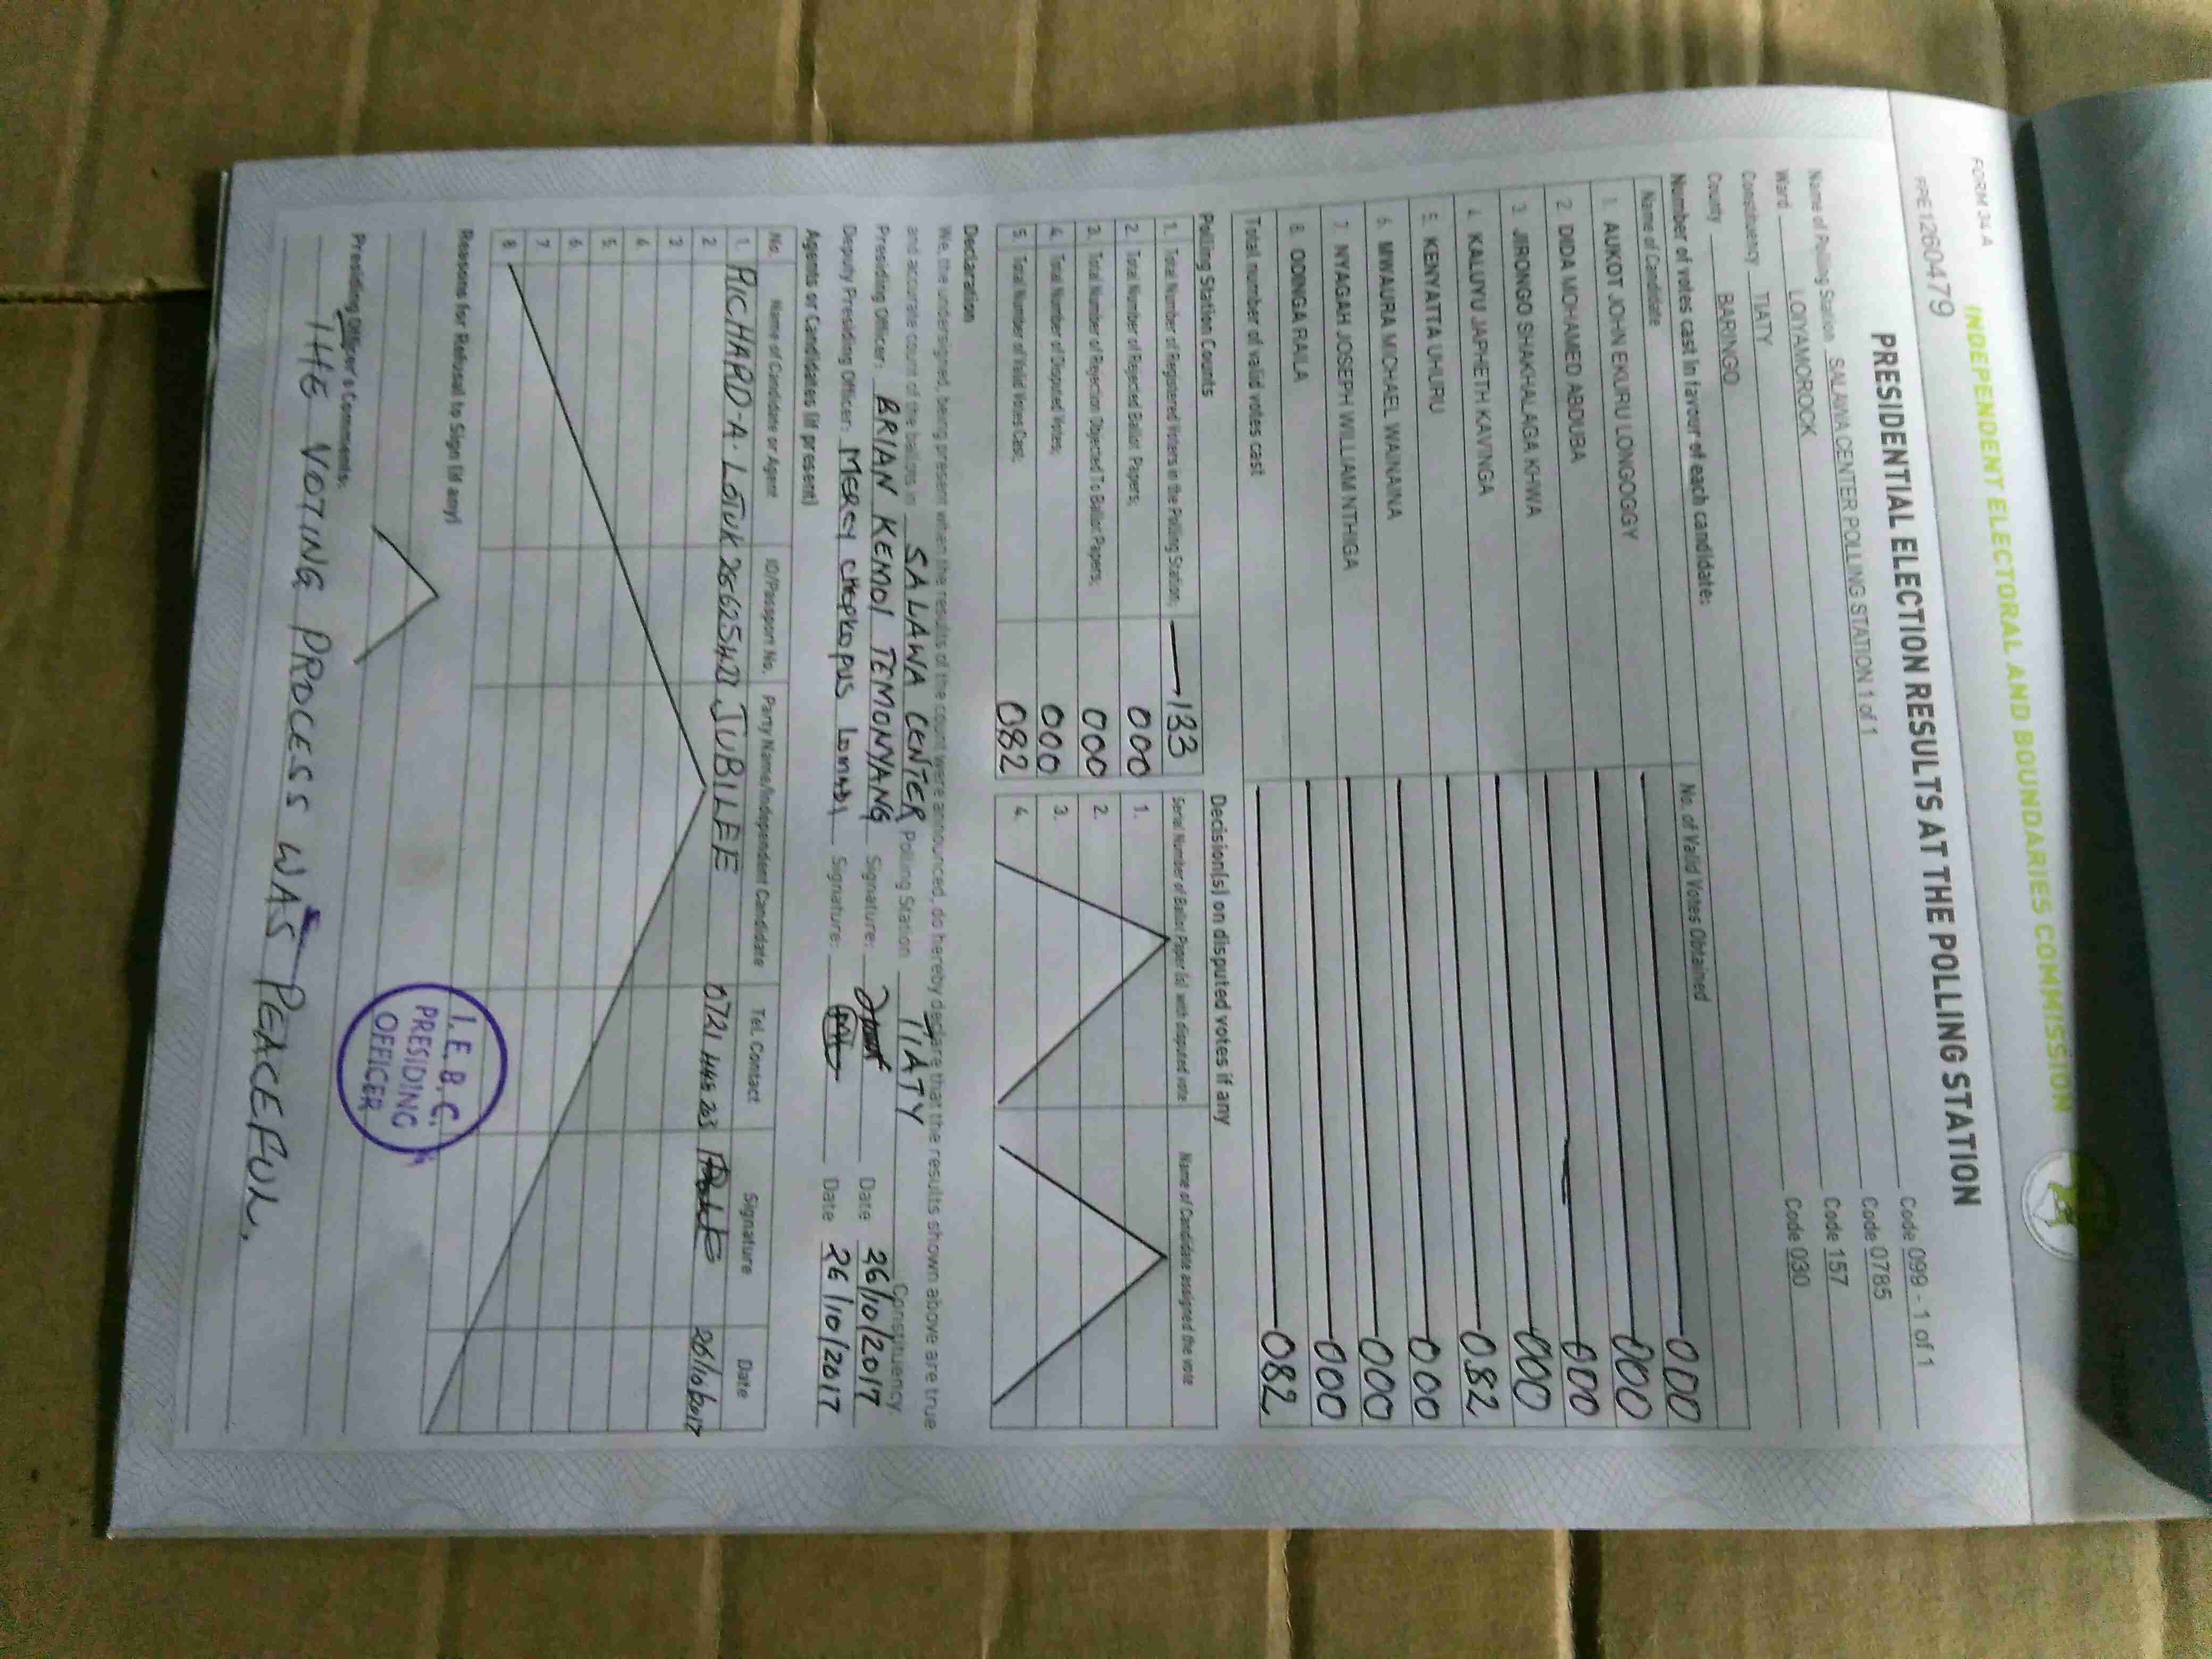 FORM 34 A
INDEPENDENT ELECTORAL AND BOUNDARIES COMMISSION
PRE1260479
PRESIDENTIAL ELECTION RESULTS AT THE POLLING STATION
Name of Polling Station SALAWA CENTER POLLING STATION 1 of 1 Code 099 - 1 of 1
Ward LOIYAMOROCK Code 0785
Constituency TIATY Code 157
County BARINGO Code 030
Number of votes cast in favour of each candidate:
Name of Candidate No. of Valid Votes Obtained
1. AUKOT JOHN EKURU LONGOGGY 000
2. DIDA MOHAMED ABDUBA 000
3. JIRONGO SHAKHALAGA KHWA 000
4. KALUYU JAPHETH KAVINGA 000
5. KENYATTA UHURU 082
6. MWAURA MICHAEL WAINAINA 000
7. NYAGAH JOSEPH WILLIAM NTHIGA 000
8. ODINGA RAILA 000
Total number of valid votes cast 082
Polling Station Counts
1. Total Number of Registered Voters in the Polling Station; 133
2. Total Number of Rejected Ballot Papers; 000
3. Total Number of Rejection Objected To Ballot Papers; 000
4. Total Number of Disputed Votes; 000
5. Total Number of Valid Votes Cast; 082
Decision(s) on disputed votes if any
Serial Number of Ballot Paper (s) with disputed vote Name of Candidate assigned the vote
1.
2.
3.
4.
Declaration
We, the undersigned, being present when the results of the count were announced, do hereby declare that the results shown above are true
and accurate count of the ballots in SALAWA CENTER Polling Station TIATY Constituency.
Presiding Officer: BRIAN KEMOI TEMONYANG Signature: Date 26/10/2017
Deputy Presiding Officer: MERCY CHEPKOPUS Signature: Date 26/10/2017
Agents or Candidates (if present)
No. Name of Candidate or Agent ID/Passport No. Party Name/Independent Candidate Tel. Contact Signature Date
1. RICHARD-A. LOTUK JUBILEE 26/10/2017
2
3
4
5
6
7
8
Reasons for Refusal to Sign (if any)
Presiding Officer's Comments:
THE VOTING PROCESS WAS PEACEFUL.
I.E.B.C.
PRESIDING
OFFICER